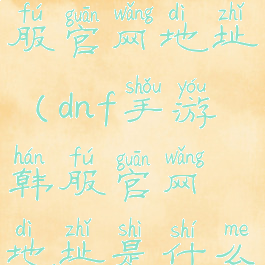 fú guān wǎng dì zhǐ
服官网地址
shǒu yóu
(dnf手游
hán fú guān wǎng
韩服官网
dì zhǐ shì shí me
地址是什么